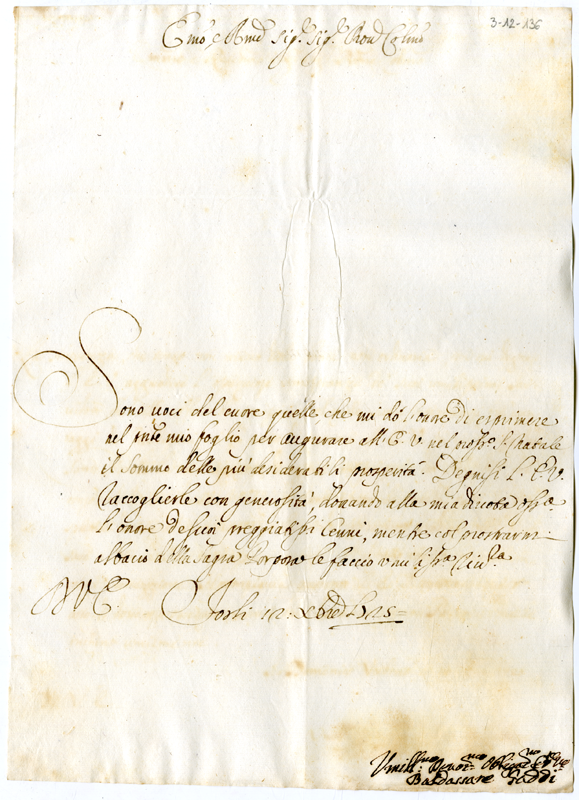 3-12-136
Emo e Rmo Sig.r Sig.r Pron Colmo
Sono voci del cuore quelle, che mi dò l'onore di esprimere
nel pnte mio foglio per augurare all' E. V. nel pross.o S. Natale
il sommo delle più desiderabili prosperità. Degnisi l' E. V.
raccoglierle con generosità, donando alla mia divota oss.a
l'onore de suoi preggiatis.mi Cenni, mentre col prostrarmi
al bacio della Sagra Porpora le faccio
Forlì 12: Xbre 1725
Umill.mo Devot.mo Obligat.mo
Baldassare Gaddi